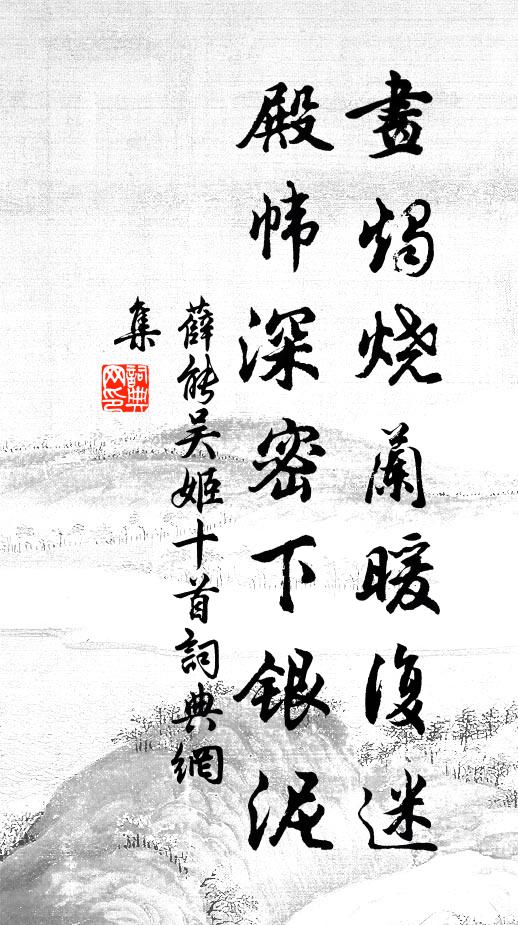 畫燭烧蘭暖復迷
殿帏深密下銀泥
薛能吴姬十首詞典網
集
詞典
网印